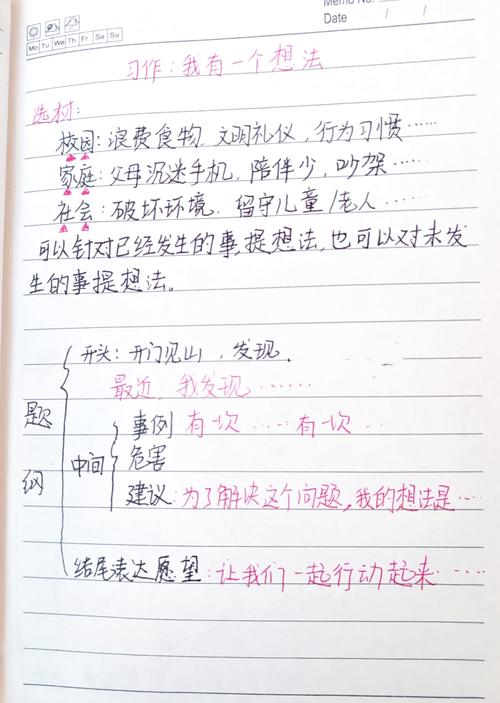 Memo No.
Mo Tu We Th Fr Sa Su
Date / /
习作：我有一个想法
选材：
校园：浪费食物，文明礼仪，行为习惯……
家庭：父母沉迷手机，陪伴少，吵架……
社会：破坏环境，留守儿童/老人……
可以针对已经发生的事提想法，也可以对未发
生的事提想法。
开头：开门见山，发现.
最近，我发现……
题
纲
中间
事例 有一次……有一次…
危害
建议：为了解决这个问题，我的想法是…
结尾表达愿望：让我们一起行动起来……